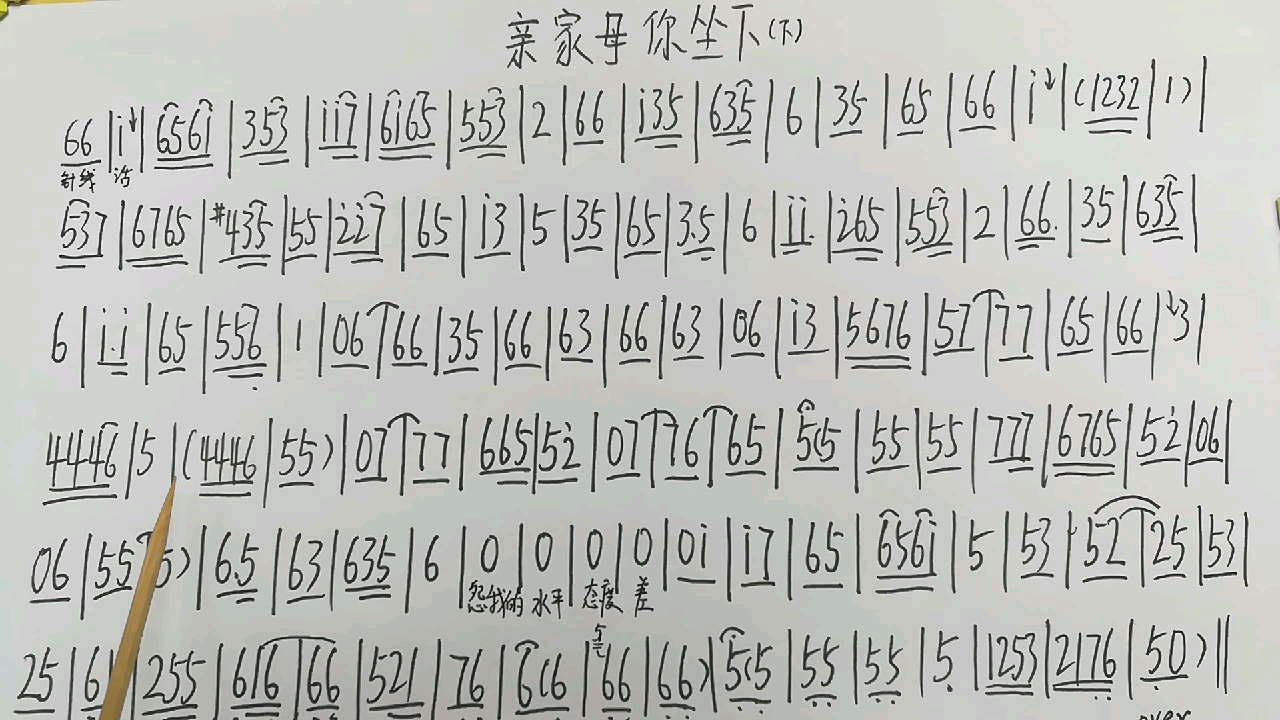 亲家母你坐下(下)
66 | i↓ | 656i | 353 | ii7 | 6i65 | 553 | 2 | 66 | i35 | 635 | 6 | 35 | 65 | 66 | i↓ | (1232 | 1) |
针线 活
537 | 6765 | #435 | 55 | 227 | 65 | i3 | 5 | 35 | 65 | 3.5 | 6 | ii. | i65 | 553 | 2 | 66. | 35 | 635 |
6 | i.i | 65 | 556 | 1 | 06 | 66 | 35 | 66 | 63 | 66 | 63 | 06 | i3 | 5676 | 57 | 77 | 65 | 66 | ↓3 |
4446 | 5 | (4446 | 55) | 07 | 77 | 665 | 52 | 07 | 76 | 65 | 5(5 | 55 | 55 | 777 | 6765 | 52 | 06 |
06 | 55 5) | 6.5 | 63 | 635 | 6 | 0 | 0 | 0 | 0 | 0i | i7 | 65 | 656i | 5 | 53 | 52 | 25 | 53 |
怨我的 水平 态度 差
25 | 6 | 255 | 616 | 66 | 521 | 76 | 6(6 | 5 66 | 66) | 5(5 | 55 | 55 | 5 | 1253 | 2176 | 50) ||